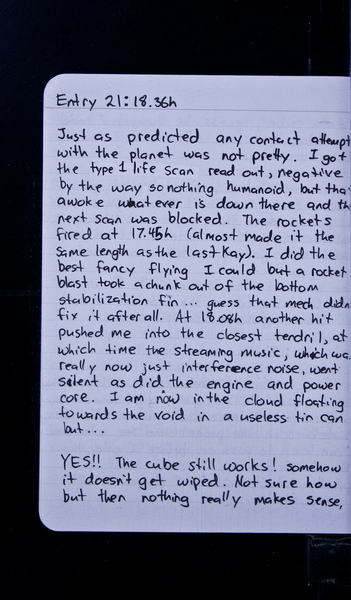 Entry 21:18.36h
Just as predicted any contact attempt
with the planet was not pretty. I got
the type 1 life scan read out, negative
by the way so nothing humanoid, but tha
awoke what ever is down there and th
next scan was blocked. The rockets
fired at 17.45h (almost made it the
same length as the last Kay). I did the
best fancy flying I could but a rocket
blast took a chunk out of the bottom
stabilization fin... guess that mech didn
fix it after all. At 18.08h another hit
pushed me into the closest tendril, at
which time the streaming music, which wa
really now just interference noise, went
silent as did the engine and power
core. I am now in the cloud floating
towards the void in a useless tin can
but...
YES!! The cube still works! somehow
it doesn't get wiped. Not sure how
but then nothing really makes sense,